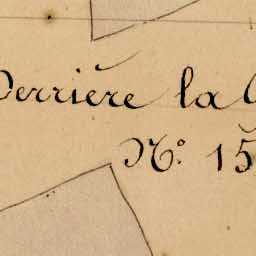 Derrière la
N.° 15